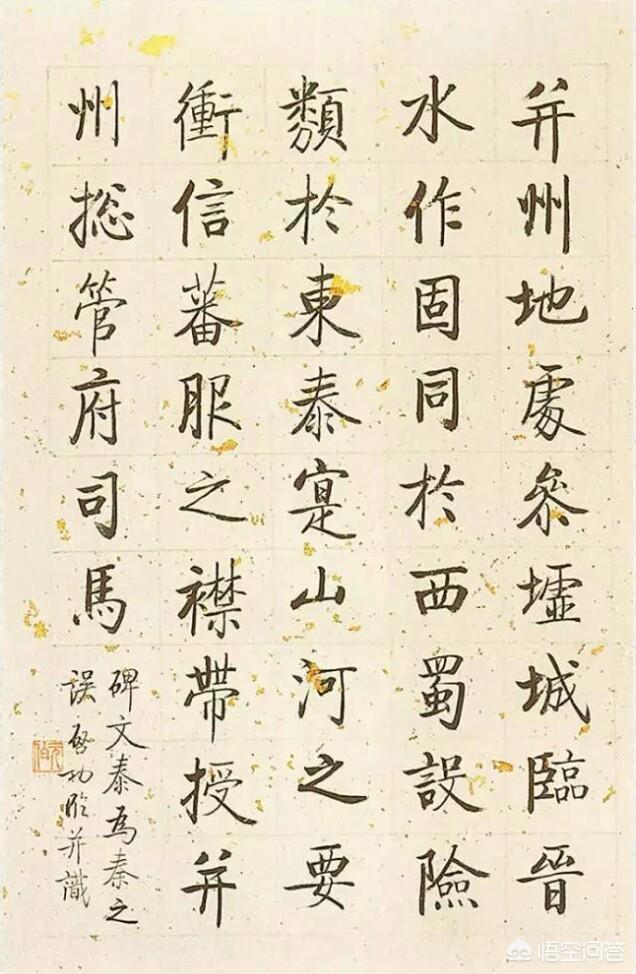 并州地處参墟城臨晉
水作固同於西蜀設險
類於東泰寔山河之要
衝信蕃服之襟帶授并
州捴管府司馬
碑文泰為秦之
誤啓功臨并識
悟空问答